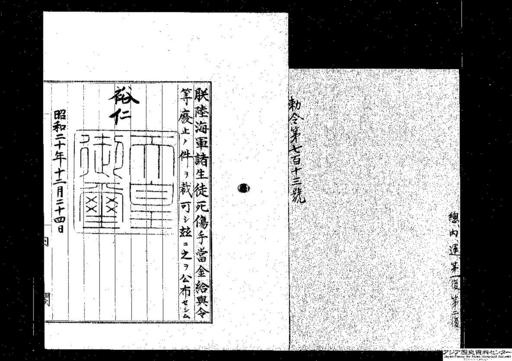 勅令第七百十三號
總 内 運 第一復 第二復
朕陸海軍諸生徒死傷手當金給與令
等廢止ノ件ヲ裁可シ茲ニ之ヲ公布セシム
裕仁
天皇御璽
昭和二十年十二月二十四日
内閣
アジア歴史資料センター